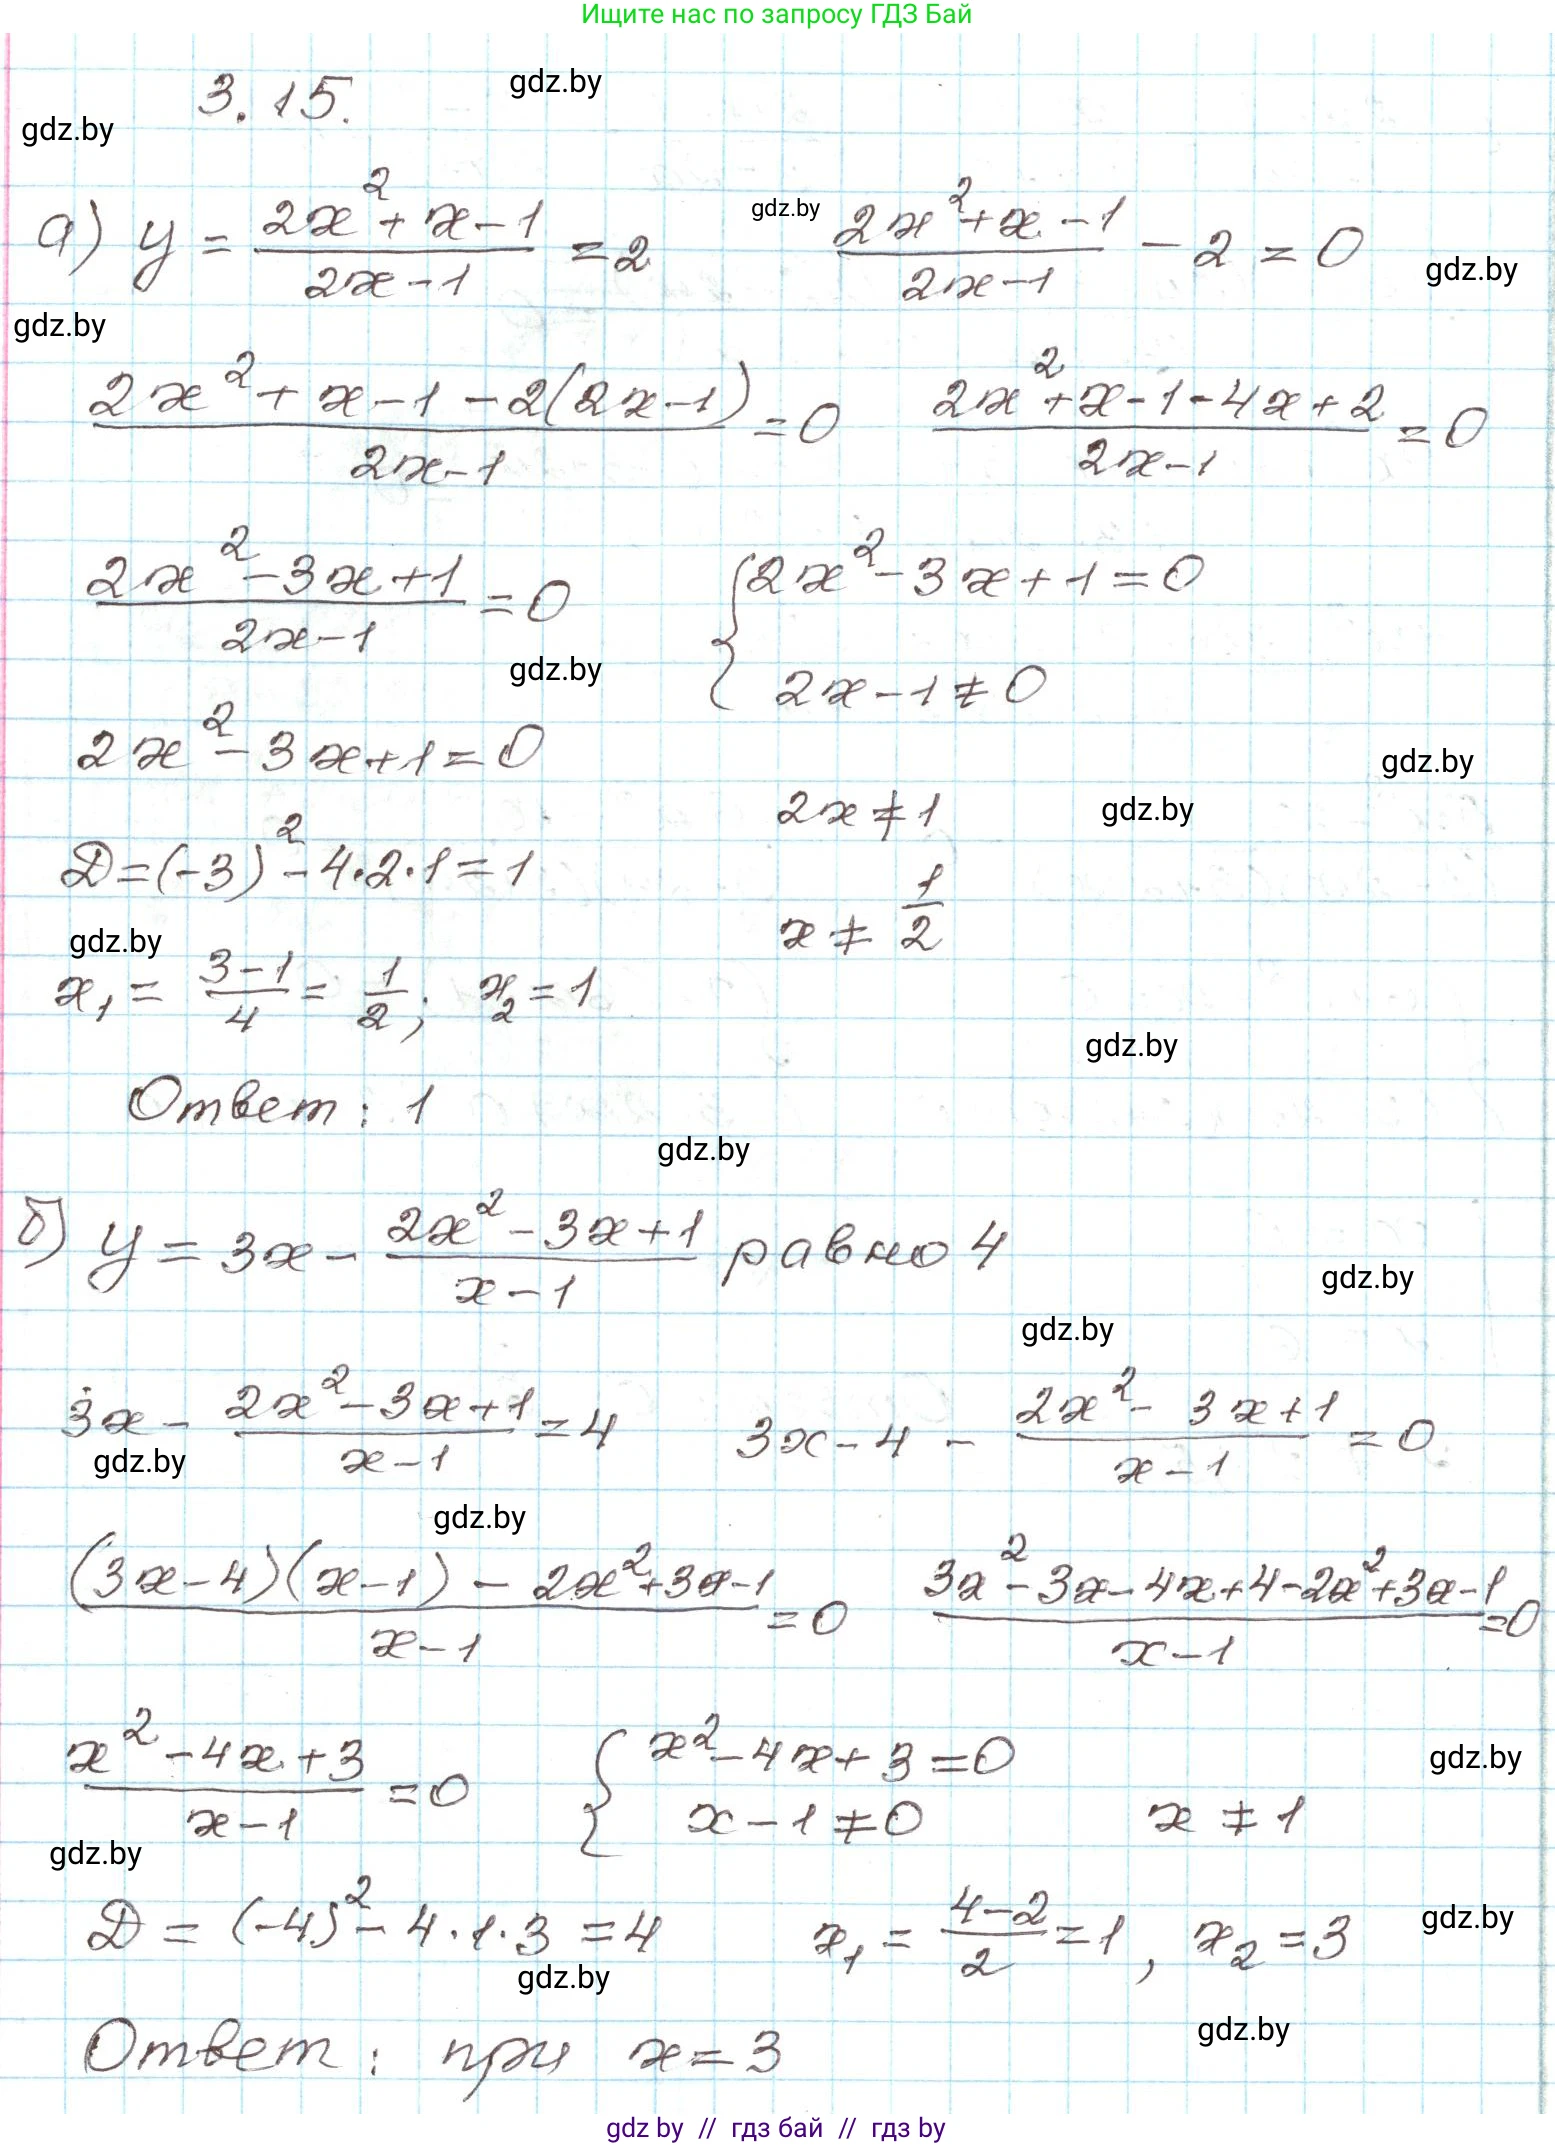 Ищите нас по запросу ГДЗ Бай
gdz.by
3.15.
gdz.by
а) y = (2x² + x - 1)/(2x - 1) = 2    gdz.by    (2x² + x - 1)/(2x - 1) - 2 = 0
gdz.by
gdz.by
(2x² + x - 1 - 2(2x - 1))/(2x - 1) = 0    (2x² + x - 1 - 4x + 2)/(2x - 1) = 0
(2x² - 3x + 1)/(2x - 1) = 0    { 2x² - 3x + 1 = 0
gdz.by    2x - 1 ≠ 0
2x² - 3x + 1 = 0
gdz.by
2x ≠ 1    gdz.by
D = (-3)² - 4·2·1 = 1
x ≠ 1/2
gdz.by
x₁ = (3 - 1)/4 = 1/2; x₂ = 1
gdz.by
Ответ: 1
gdz.by
б) y = 3x - (2x² - 3x + 1)/(x - 1) равно 4
gdz.by
gdz.by
3x - (2x² - 3x + 1)/(x - 1) = 4    3x - 4 - (2x² - 3x + 1)/(x - 1) = 0
gdz.by
gdz.by
((3x - 4)(x - 1) - 2x² + 3x - 1)/(x - 1) = 0    (3x² - 3x - 4x + 4 - 2x² + 3x - 1)/(x - 1) = 0
(x² - 4x + 3)/(x - 1) = 0    { x² - 4x + 3 = 0    gdz.by
x - 1 ≠ 0    x ≠ 1
gdz.by
D = (-4)² - 4·1·3 = 4    x₁ = (4 - 2)/2 = 1, x₂ = 3    gdz.by
gdz.by
gdz.by
Ответ: при x = 3
gdz by // гдз бай // гдз by